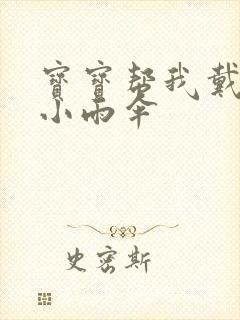 寶寶幫我戴
小雨伞
史密斯